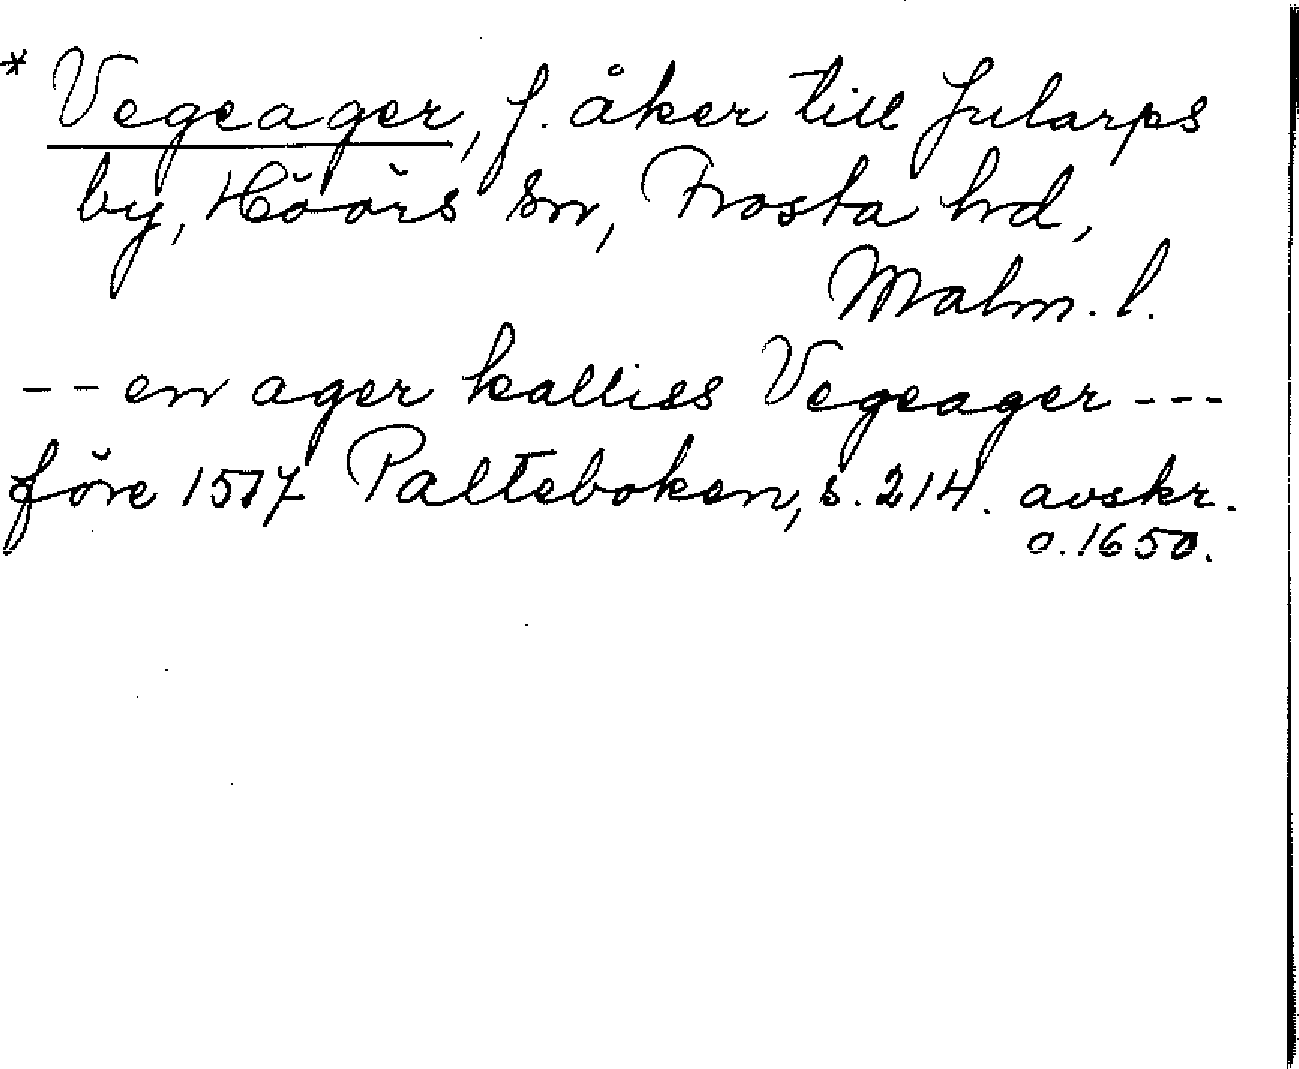 * Vegeager, f. åker till Jularps
by, Höörs sn, Frosta hd,
Malm. l.
-- en ager kalliss Vegeager ---
före 1517 Palteboken, s. 214. avskr.
o. 1650.